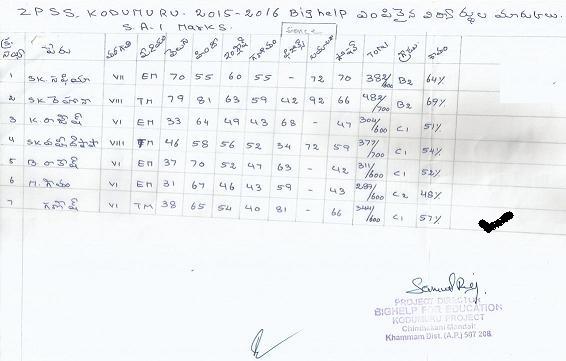 ZPSS, KODUMURU. 2015-2016 Bighelp పంపిణైన విద్యార్థుల మార్కులు.
S.A-I Marks. Science
క్ర.సంఖ్య పేరు తరగతి మీడియం తెలుగు హిందీ ఇంగ్లీష్ గణితం సోషల్ TOTAL గ్రేడు శాతం
1 SK. VII EM 70 55 60 55 - 72 70 382/600 B2 64%
2 SK రెహనా VIII TM 79 81 63 59 42 92 66 482/700 B2 69%
3 K. రాజేష్ VI EM 33 64 49 43 68 - 47 304/600 C1 51%
4 SK VIII TM 46 58 56 52 34 72 59 377/700 C1 54%
5 B. రాకేష్ VI EM 37 70 52 47 63 - 42 311/600 C1 52%
6 M. గౌతం VI EM 31 67 46 43 59 - 43 289/600 C2 48%
7 గణేష్ VI TM 38 65 54 40 81 - 66 344/600 C1 57%
PROJECT DIRECTOR
BIGHELP FOR EDUCATION
KODUMURU PROJECT
Chinthakani Mandal:
Khammam Dist. (A.P.) 507 208.